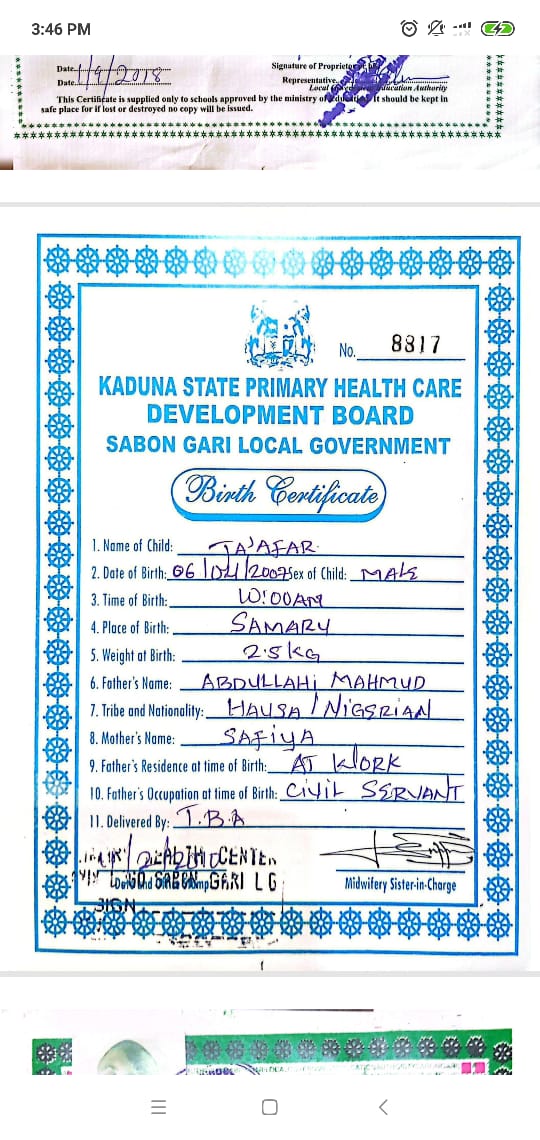 3:46 PM
Date 1/9/2018 Signature of Proprietor
Date Representative
Local Education Authority
This Certificate is supplied only to schools approved by the ministry of education it should be kept in
safe place for if lost or destroyed no copy will be issued.
No. 8817
KADUNA STATE PRIMARY HEALTH CARE
DEVELOPMENT BOARD
SABON GARI LOCAL GOVERNMENT
Birth Certificate
1. Name of Child: JA'AFAR
2. Date of Birth: 06/04/2007 Sex of Child: MALE
3. Time of Birth: 10:00AM
4. Place of Birth: SAMARU
5. Weight at Birth: 2.5kG
6. Father's Name: ABDULLAHi MAHMUD
7. Tribe and Nationality: HAUSA / NiGERIAN
8. Mother's Name: SAFiYA
9. Father's Residence at time of Birth: AT WORK
10. Father's Occupation at time of Birth: CiViL SERVANT
11. Delivered By: T.B.A
CENTER
SABON GARI LG
SIGN
Midwifery Sister-in-Charge